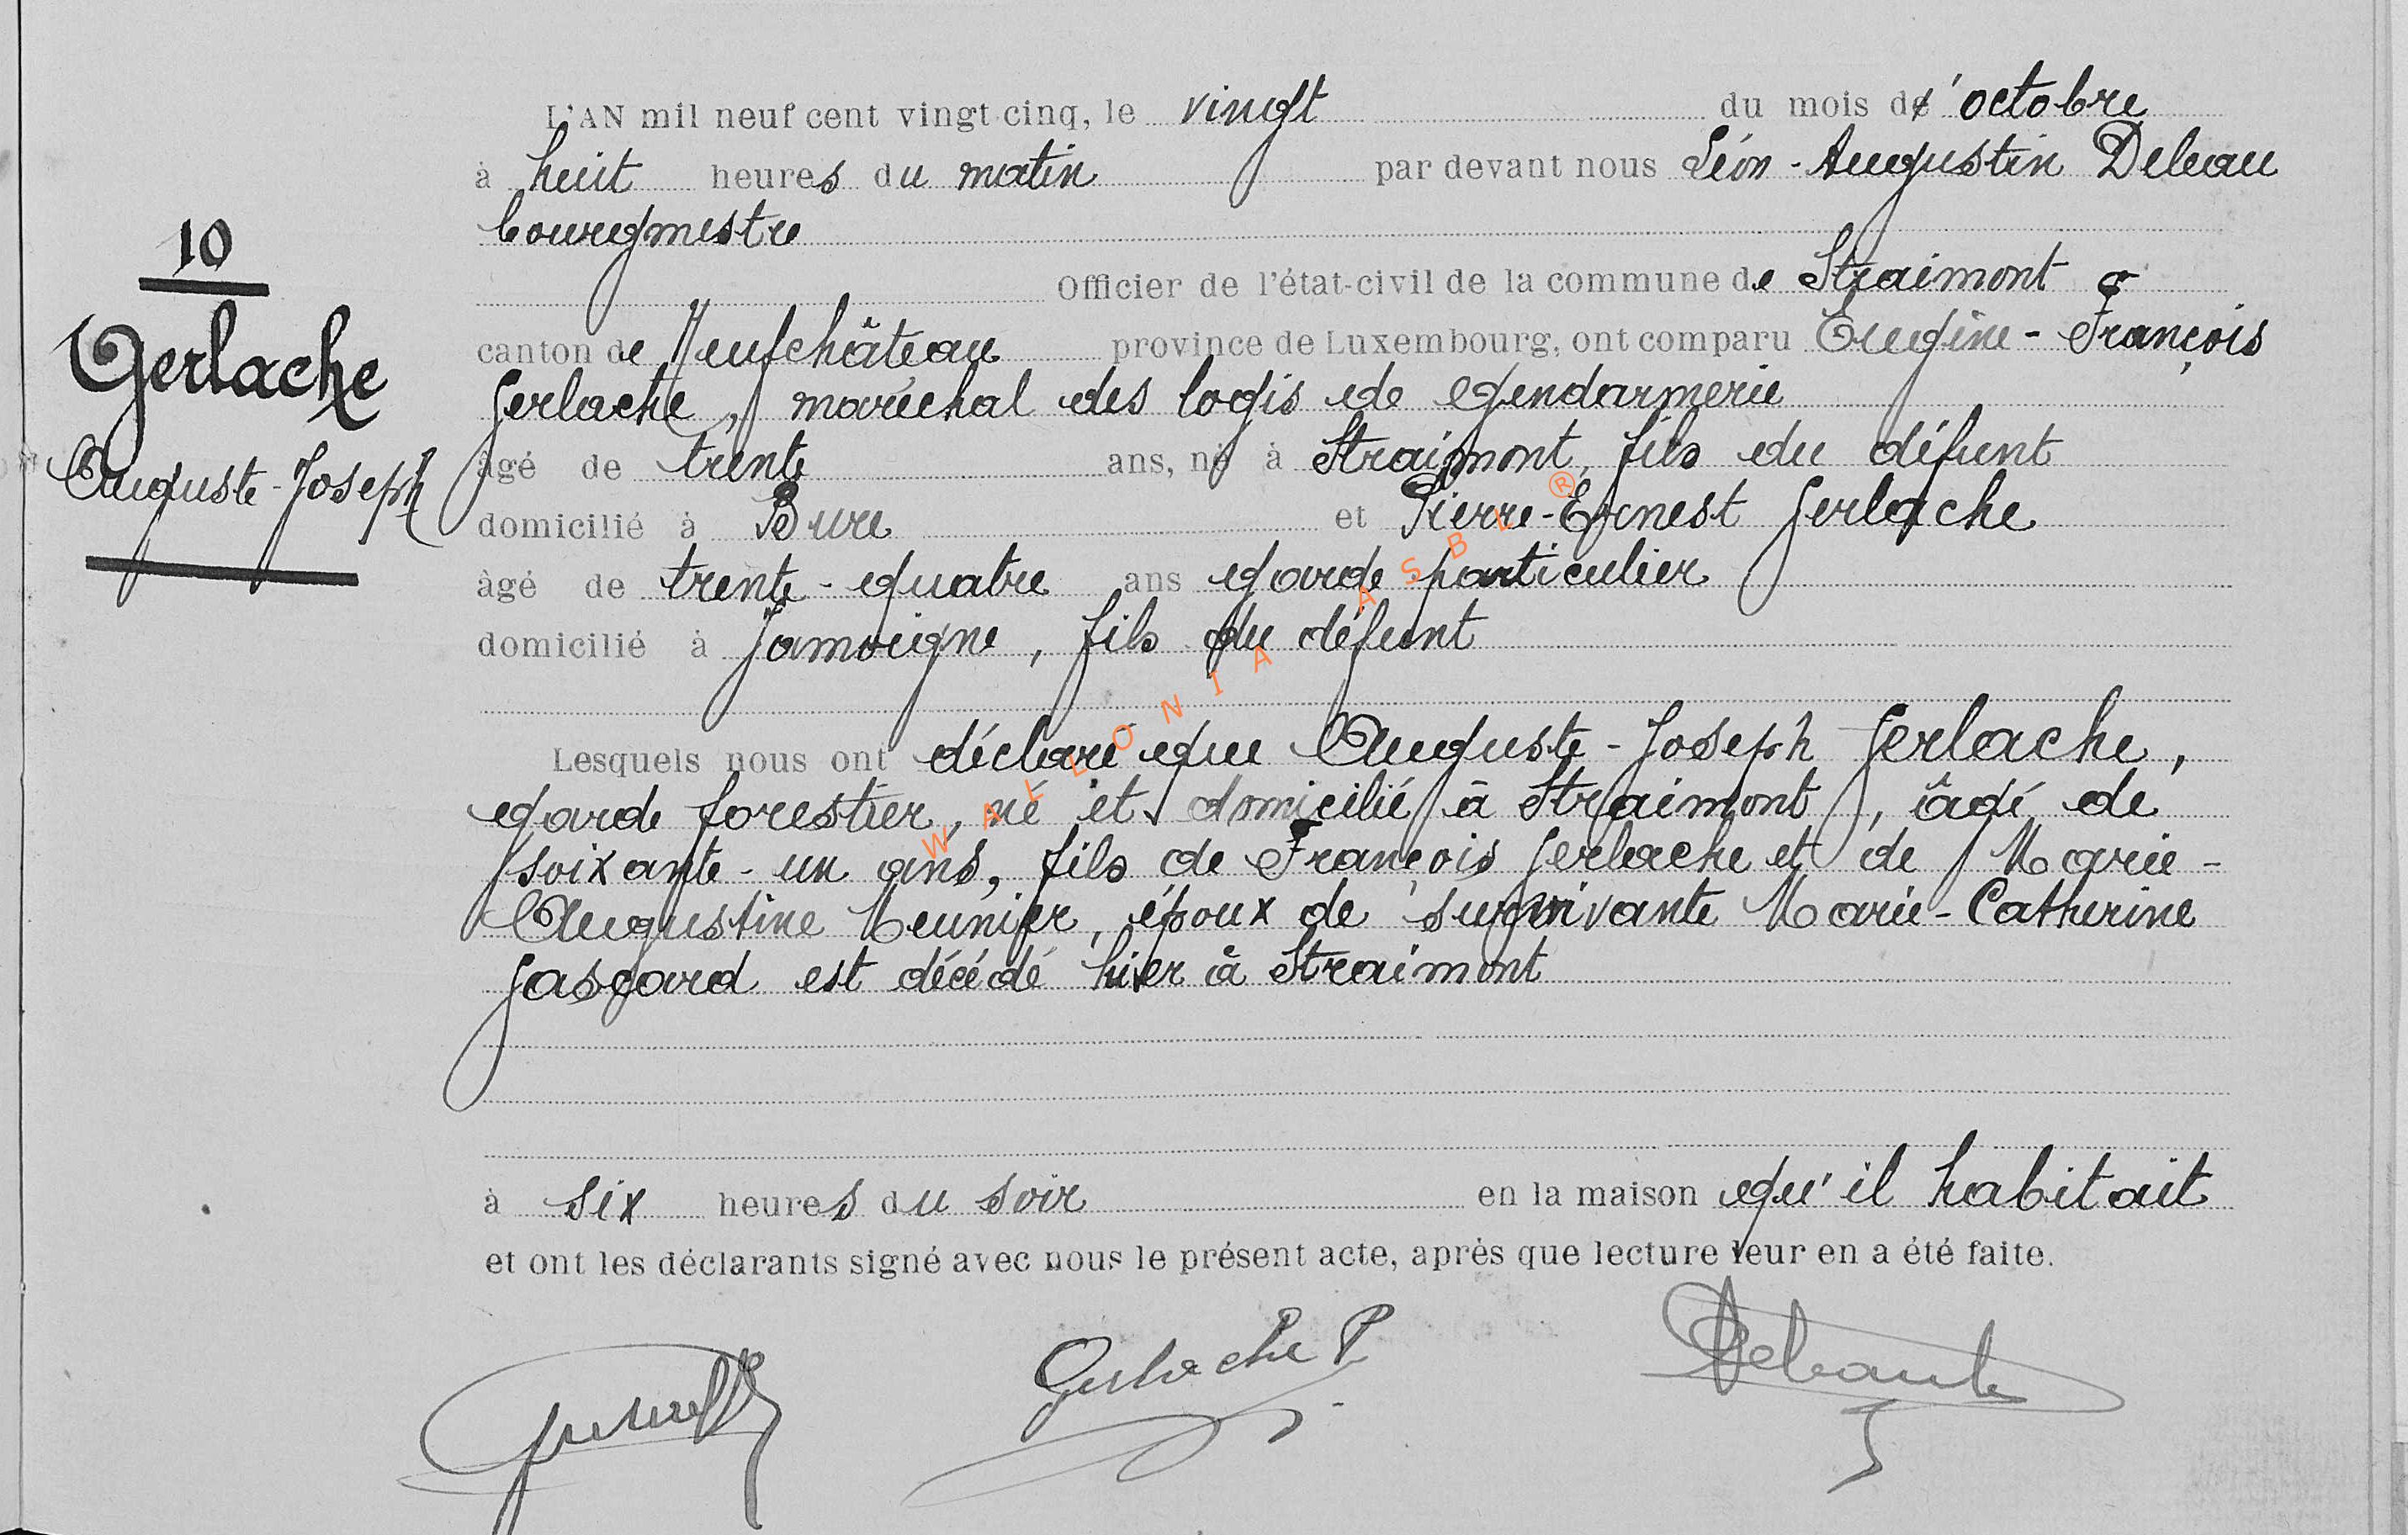 L'AN mil neuf cent vingt cinq, le vingt du mois d'octobre
à huit heures du matin par devant nous Léon-Augustin Deleau
bourgmestre
10
Officier de l'état-civil de la commune de Straimont
canton de Neufchâteau province de Luxembourg, ont comparu Eugène-François
Gerlache
Gerlache, maréchal des logis de gendarmerie
Auguste-Joseph
âgé de trente ans, né à Straimont, fils du défunt
domicilié à Bure et Pierre-Ernest Gerlache
âgé de trente-quatre ans garde particulier
domicilié à Jamoigne, fils du défunt
Lesquels nous ont déclaré que Auguste-Joseph Gerlache,
garde forestier, né et domicilié à Straimont, âgé de
soixante-un ans, fils de François Gerlache et de Marie-
Augustine Meunier, époux de survivante Marie-Catherine
Gascard est décédé hier à Straimont
à six heures du soir en la maison qu'il habitait
et ont les déclarants signé avec nous le présent acte, après que lecture leur en a été faite.
Gerlache P
WALLONIA ASBL ®